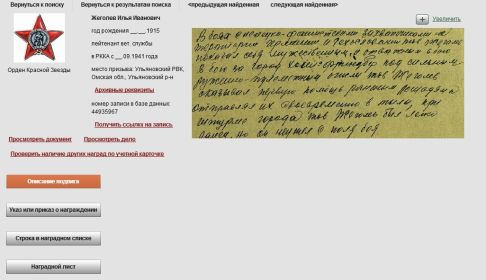 Вернуться к поиску
Вернуться к результатам поиска
<предыдущая найденная
следующая найденная>
Жеголев Илья Иванович
Увеличить
год рождения __.__.1915
лейтенант вет. службы
в РККА с __.09.1941 года
место призыва: Ульяновский РВК,
Омская обл., Ульяновский р-н
Орден Красной Звезды
Архивные реквизиты
номер записи в базе данных:
44935967
Получить ссылку на запись
Просмотреть документ
Просмотреть дело
Проверить наличие других наград по учетной карточке
В боях с немецко-фашистскими захватчиками на
территории и Чехословакии тов Жеголев
показал себя мужественным и отважным
В бою за город под сильным
ружейно-пулеметным огнем тов Жеголев
оказывал первую помощь раненым лошадям
отправлял их своевременно в тыл, при
штурме города тов Жеголев был легко
ранен, но он не ушел с поля боя
Описание подвига
Указ или приказ о награждении
Строка в наградном списке
Наградной лист